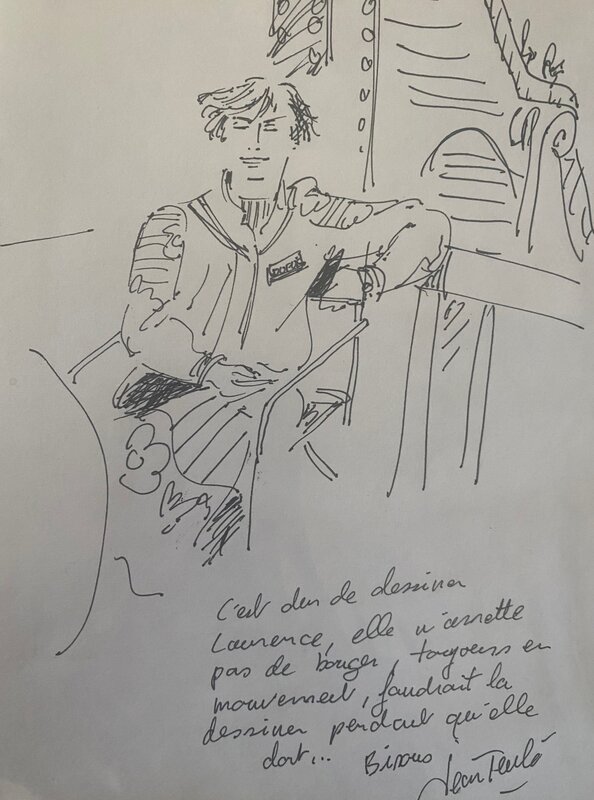 C'est dur de dessiner
Laurence, elle n'arrette
pas de bouger, toujours en
mouvement, faudrait la
dessiner pendant qu'elle
dort... Bisous
Jean Teulé